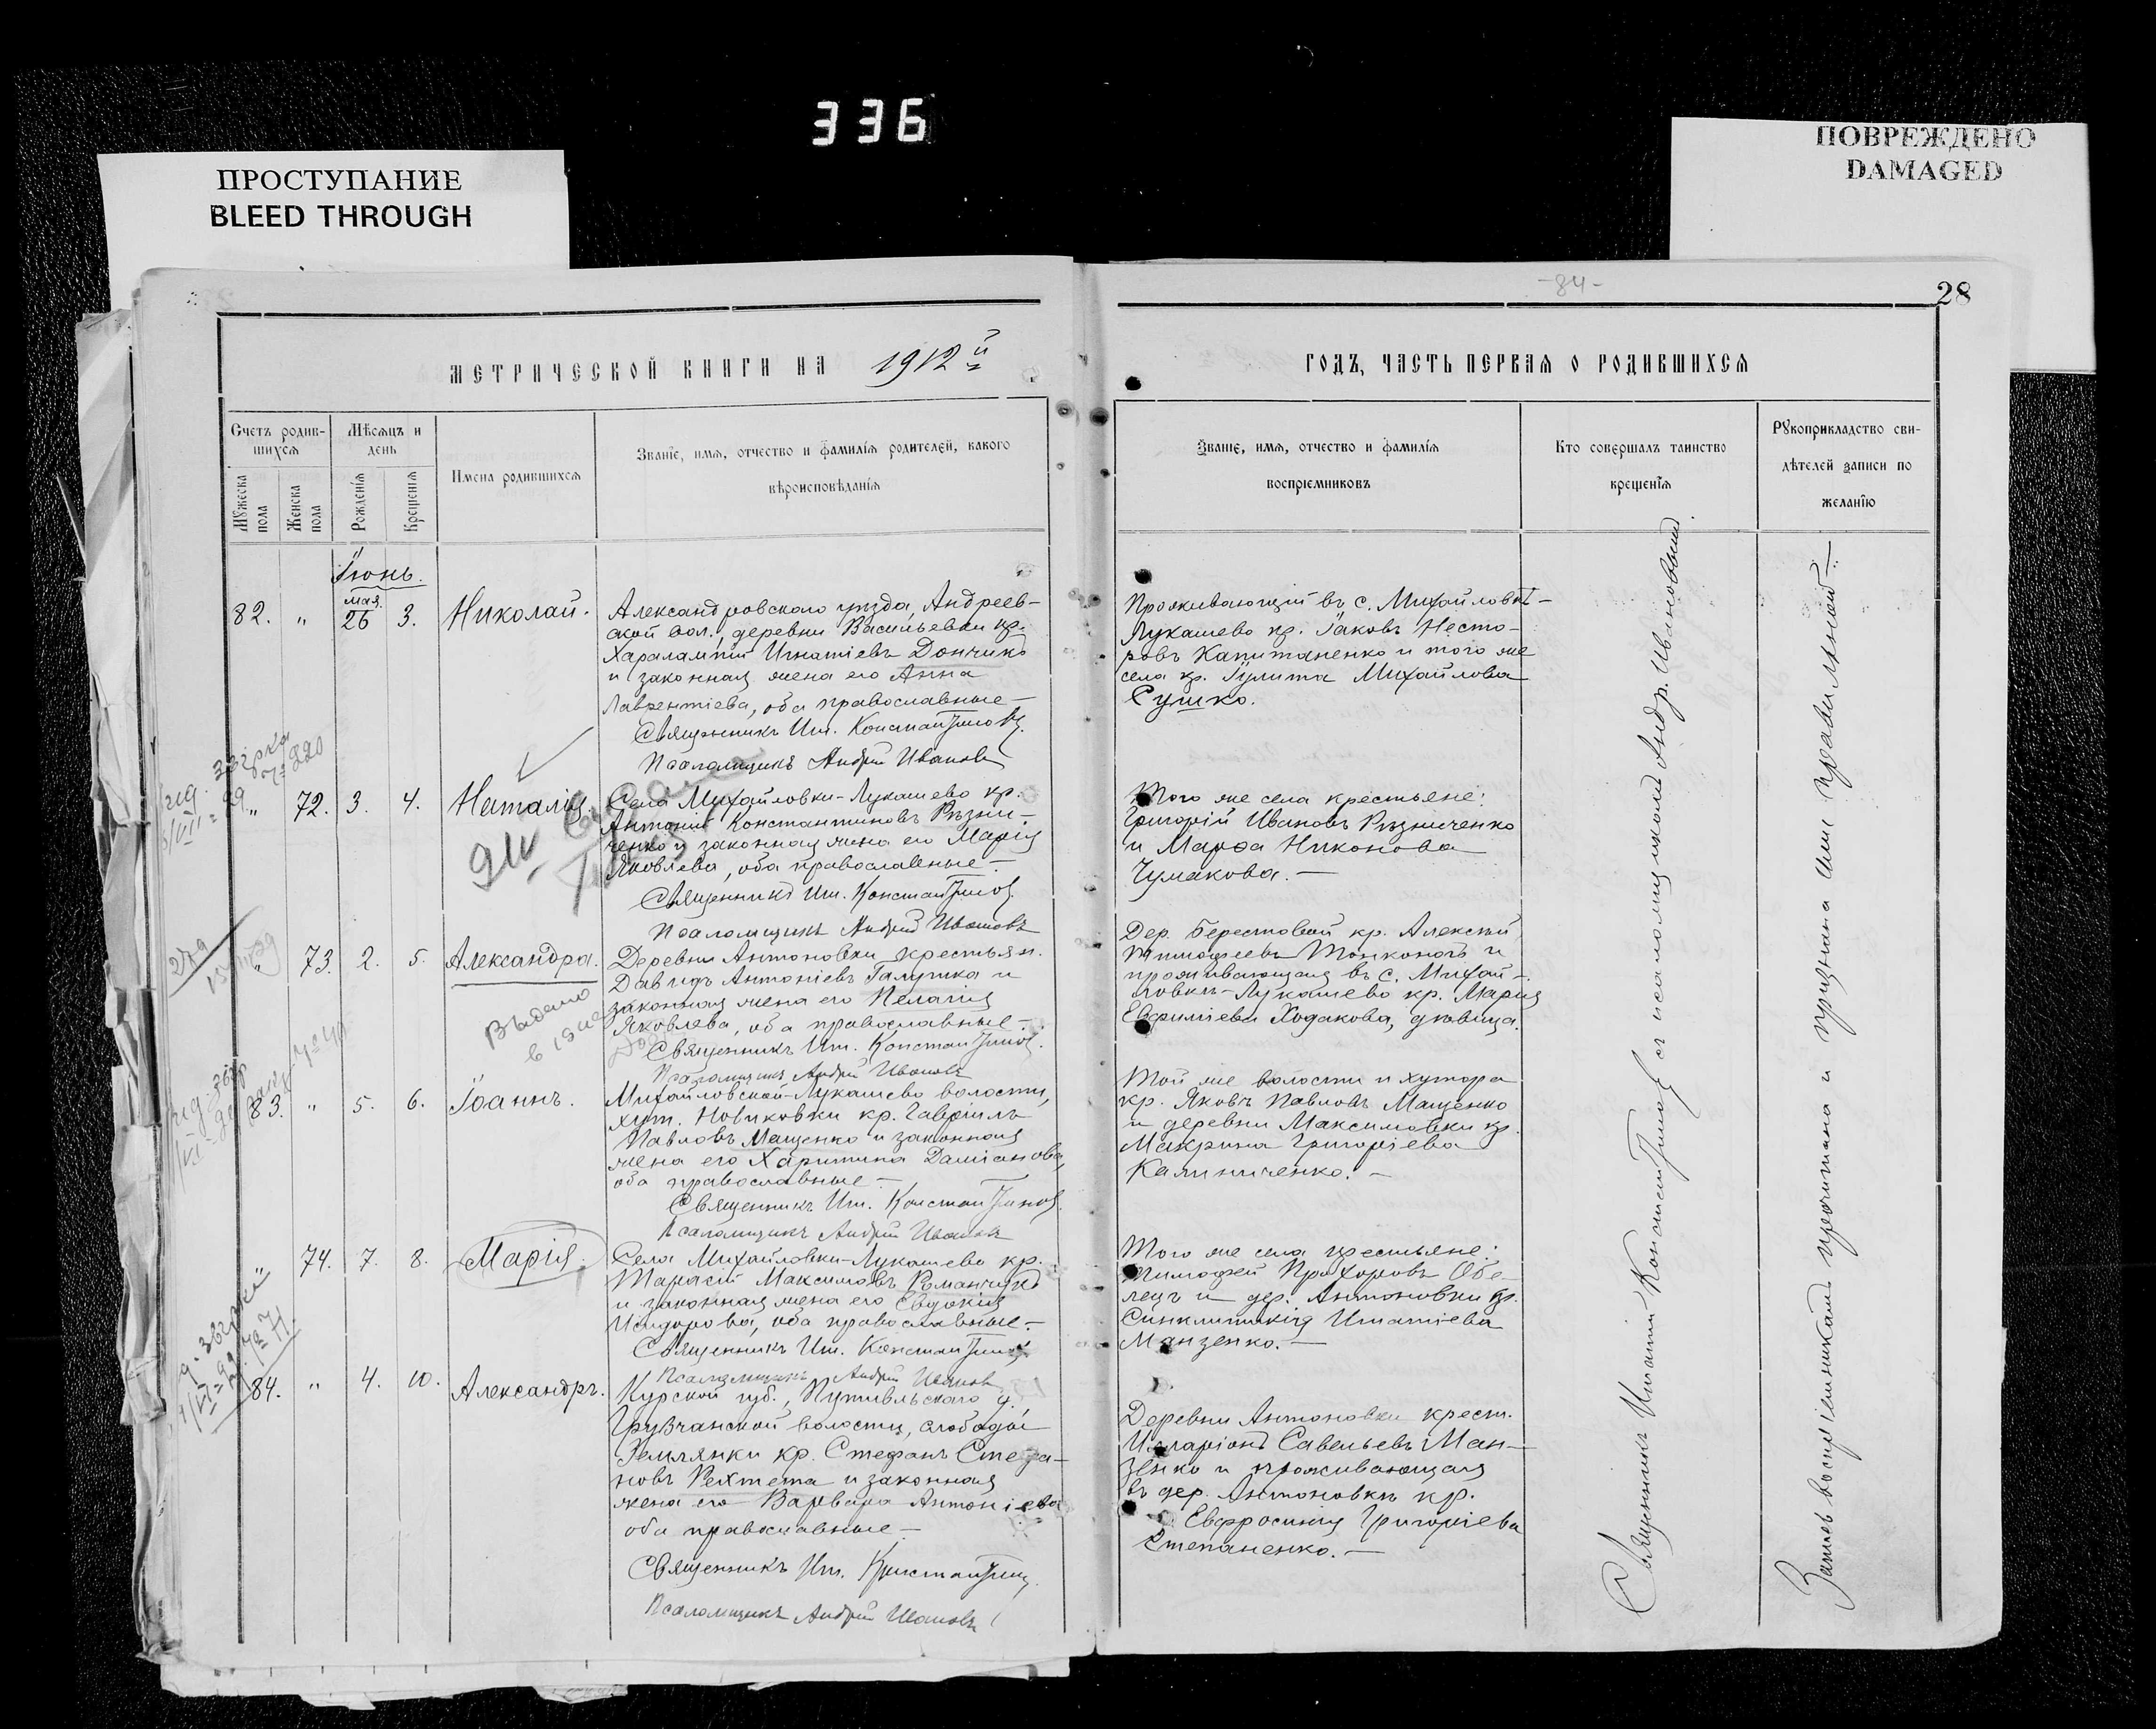 336
ПРОСТУПАНИЕ
BLEED THROUGH
ПОВРЕЖДЕНО
DAMAGED
-84-
28
МЕТРИЧЕСКОЙ КНИГИ НА 1912й
ГОДЪ, ЧАСТЬ ПЕРВАЯ О РОДИВШИХСЯ
Счетъ родив-
шихся
Мѣсяцъ и
день
Мужеска пола
Женска пола
Рожденія
Крещенія
Имена родившихся
Званіе, имя, отчество и фамилія родителей, какого
вѣроисповѣданія
Званіе, имя, отчество и фамилія
воспріемниковъ
Кто совершалъ таинство
крещенія
Рукоприкладство сви-
дѣтелей записи по
желанію
Іюнь.
мая
82. " 26 3. Николай.
Александровскаго уѣзда, Андреев-
ской вол., деревни Васильевки кр.
Харалампій Игнатіевъ Дончикъ
и законная жена его Анна
Лаврентіева, оба православные —
Священникъ Иг. Константинов.
Псаломщикъ Андрей Иванов
Проживающій въ с. Михайловкѣ-
Лукашево кр. Іаковъ Несто-
ровъ Капитаненко и того же
села кр. Іулита Михайлова
Сушко.
" 72. 3. 4. Наталія.
Села Михайловки-Лукашево кр.
Антоній Константиновъ Рѣзни-
ченко и законная жена его Марія
Яковлева, оба православные —
Священникъ Иг. Константинов.
Псаломщикъ Андрей Ивановъ
Того же села крестьяне:
Григорій Ивановъ Рѣзниченко
и Марѳа Никонова
Чумакова. —
" 73. 2. 5. Александра.
Деревни Антоновки крестьян.
Давидъ Антоніевъ Галушка и
законная жена его Пелагія
Яковлева, оба православные —
Священникъ Иг. Константинов.
Псаломщикъ Андрей Ивановъ
Дер. Берестовой кр. Алексѣй
Тимоѳеевъ Тонконогъ и
проживающая въ с. Михай-
ловкѣ-Лукашево кр. Марія
Евфиміева Ходакова, дѣвица.
83. " 5. 6. Іоаннъ.
Михайловской-Лукашево волости,
хут. Новиковки кр. Гавріилъ
Павловъ Мащенко и законная
жена его Харитина Даміанова,
оба православные —
Священникъ Иг. Константинов.
Псаломщикъ Андрей Ивановъ
Той же волости и хутора
кр. Яковъ Павловъ Мащенко
и деревни Максимовки кр.
Макрина Григоріева
Калиниченко. —
" 74. 7. 8. Марія.
Села Михайловки-Лукашево кр.
Тарасій Максимовъ Романчукъ
и законная жена его Евдокія
Исидорова, оба православные —
Священникъ Иг. Константинов
Псаломщикъ Андрей Иванов
Того же села крестьяне:
Тимоѳей Прохоровъ Обе-
лецъ и дер. Антоновки кр.
Синклитикія Игнатіева
Манзенко. —
84. " 4. 10. Александръ.
Курской губ., Путивльскаго у.,
Грузчанской волости, слободы
Землянки кр. Стефанъ Стефа-
новъ Рехтета и законная
жена его Варвара Антоніева
оба православные —
Священникъ Иг. Константинов.
Псаломщикъ Андрей Ивановъ
Деревни Антоновки крест.
Иларіонъ Савельевъ Ман-
зенко и проживающая
въ дер. Антоновкѣ кр.
Евфросинія Григоріева
Степаненко. —
Священникъ Игнатій Константинов съ псаломщикомъ Андр. Ивановымъ
Запись воспріемниками прочитана и признана ими правильной —